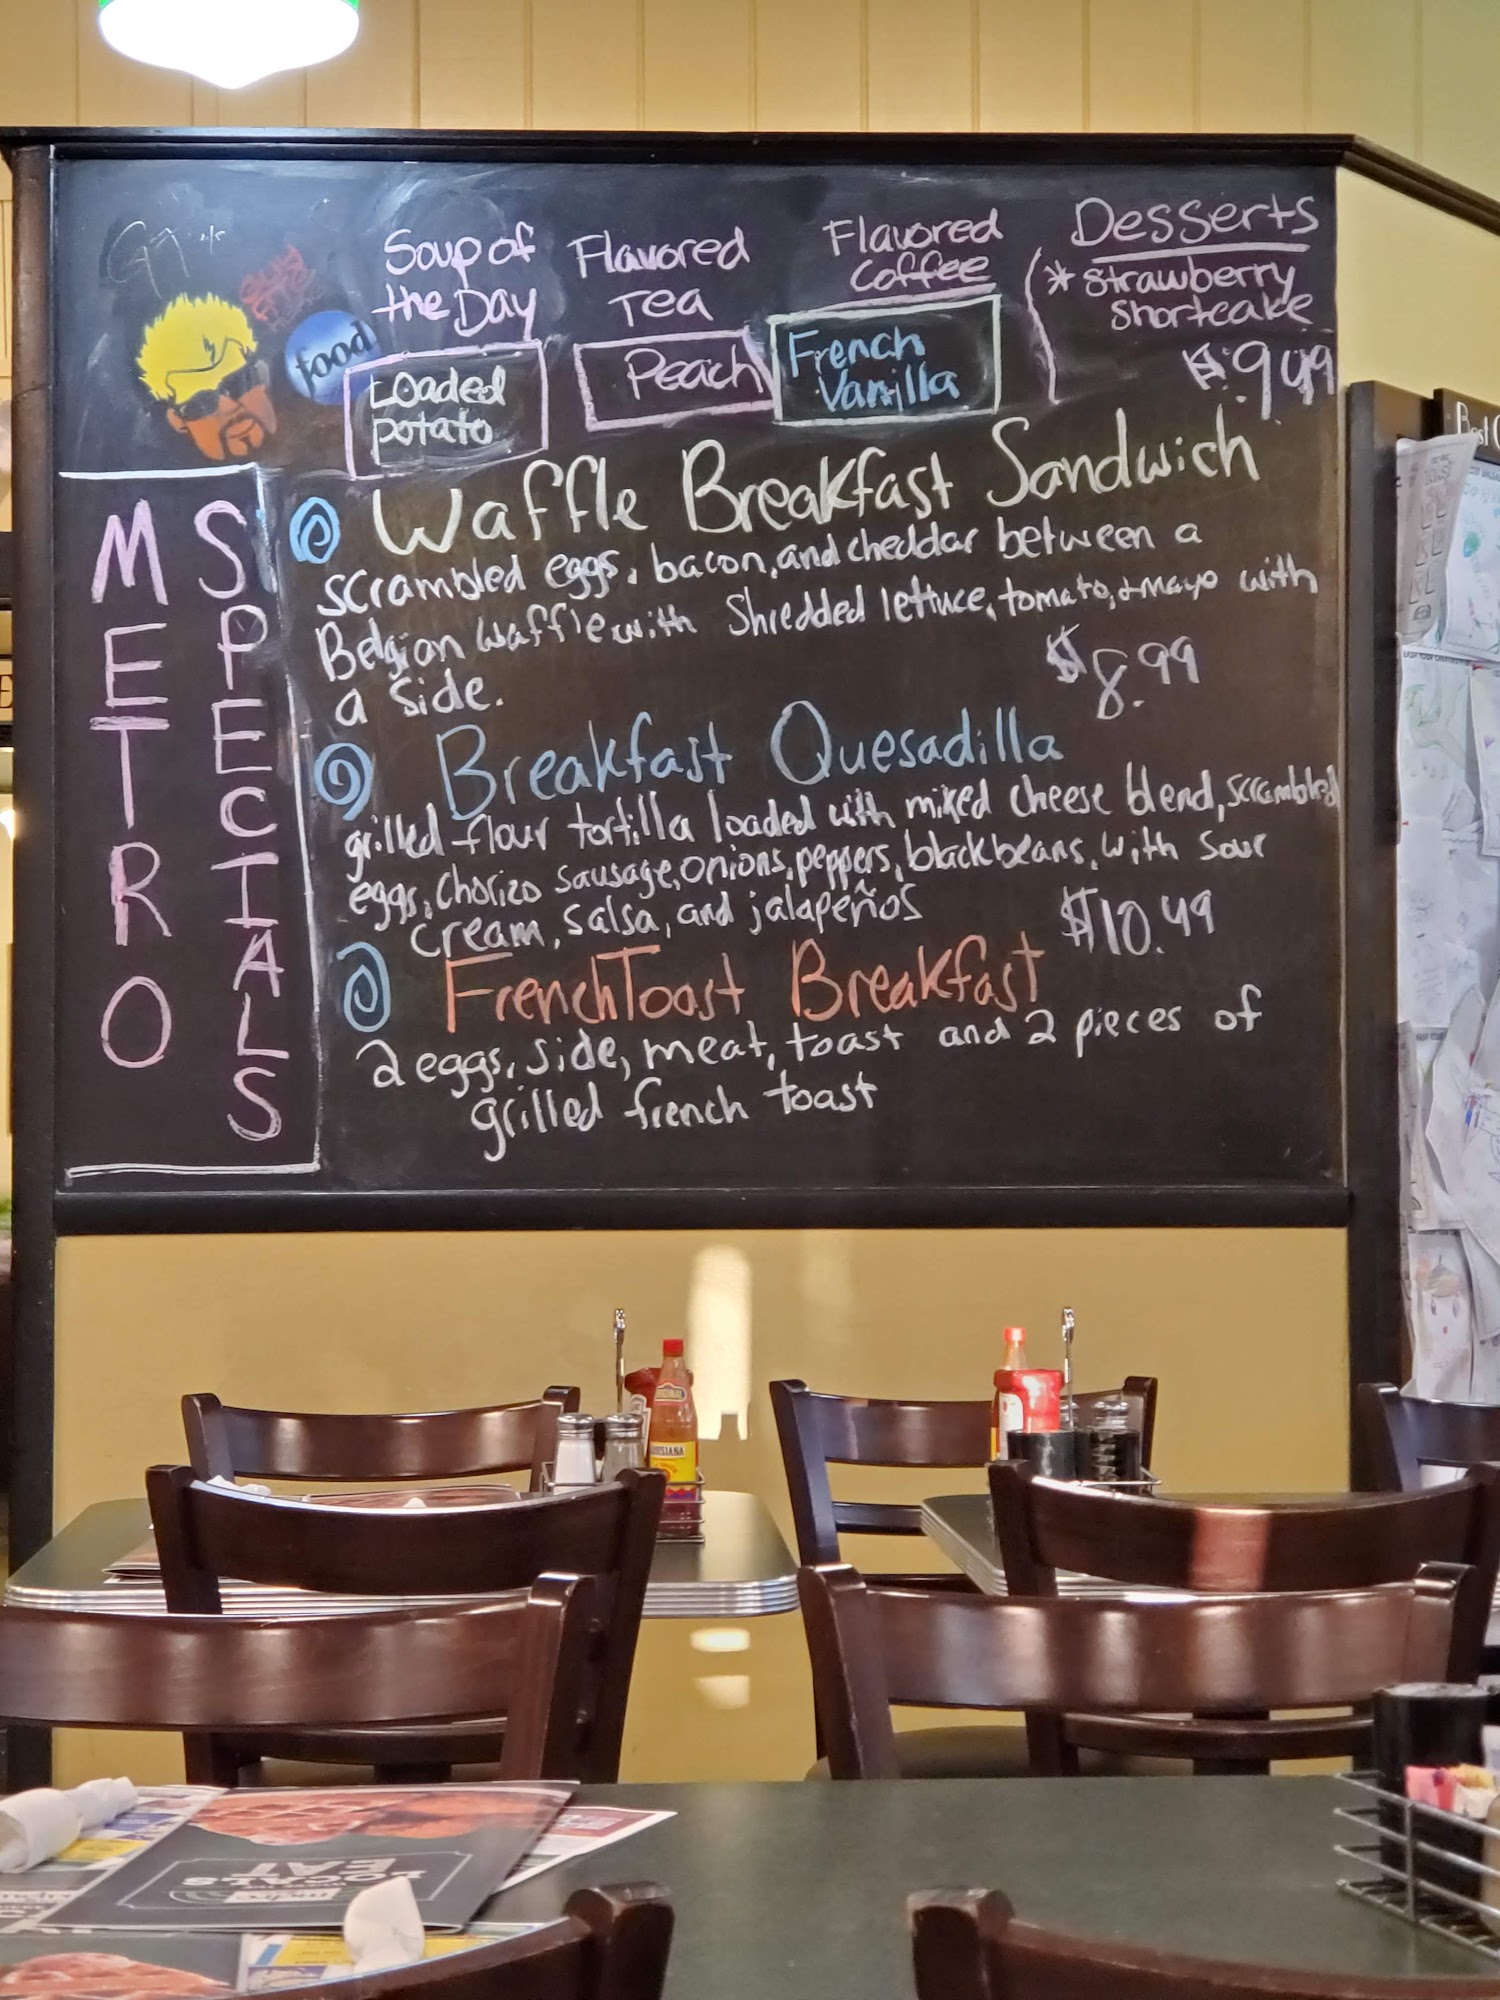 Soup of
the Day
Loaded
potato
Flavored
Tea
Peach
Flavored
Coffee
French
Vanilla
Desserts
* Strawberry
Shortcake
$9.49
food
METRO
SPECIALS
Waffle Breakfast Sandwich
scrambled eggs, bacon, and cheddar between a
Belgian waffle with shredded lettuce, tomato, + mayo with
a side.
$8.99
Breakfast Quesadilla
grilled flour tortilla loaded with mixed cheese blend, scrambled
eggs, chorizo sausage, onions, peppers, black beans, with sour
cream, salsa, and jalapeños
$10.49
French Toast Breakfast
2 eggs, side, meat, toast and 2 pieces of
grilled french toast
LOCALS
EAT